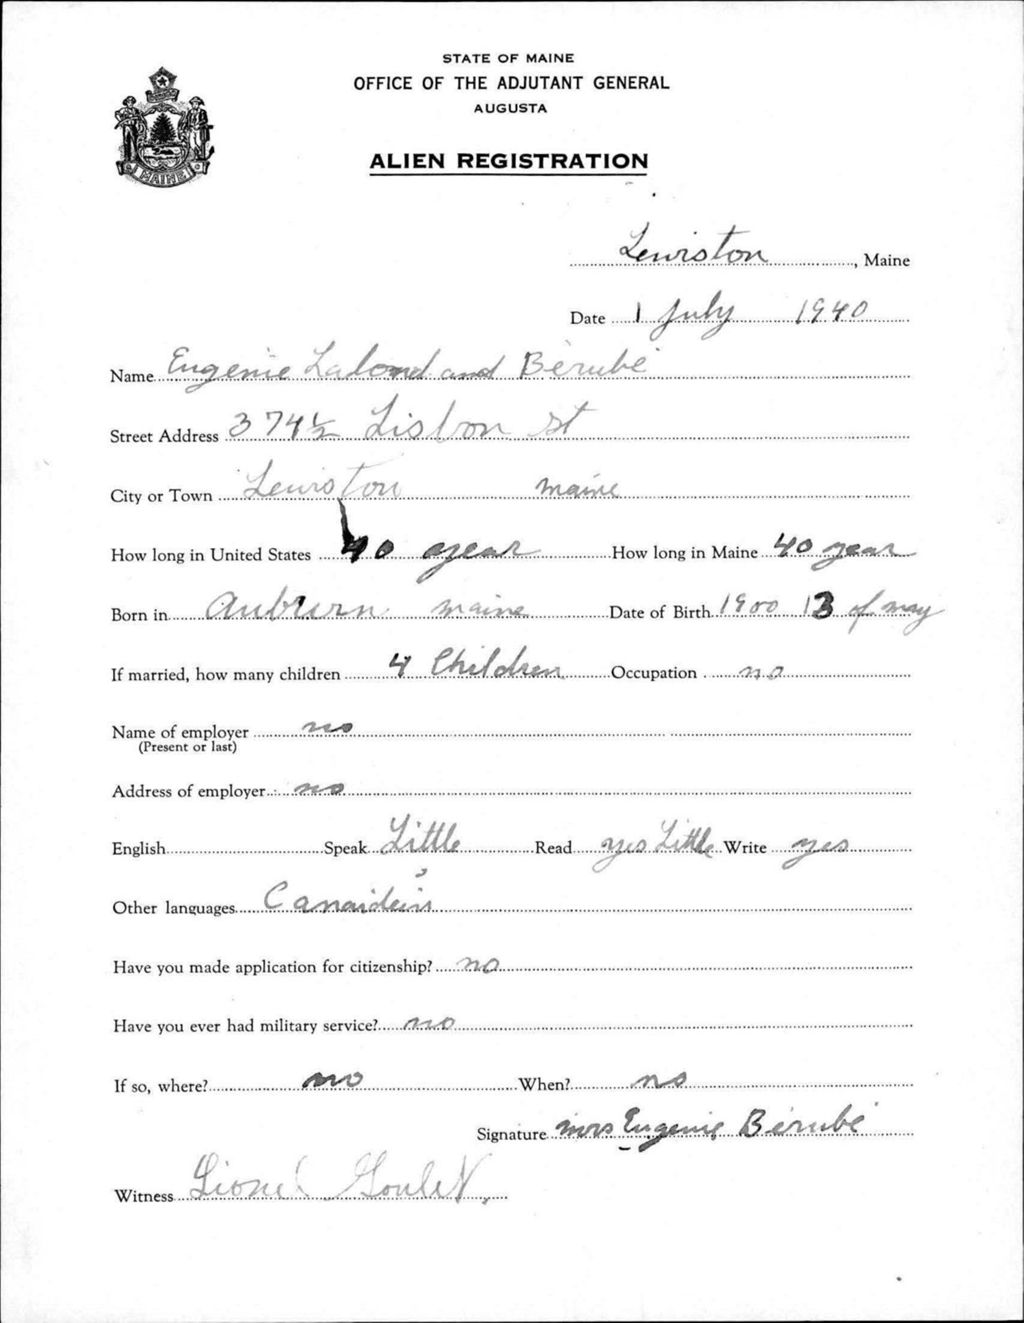 STATE OF MAINE
OFFICE OF THE ADJUTANT GENERAL
AUGUSTA
MAINE
ALIEN REGISTRATION
Lewiston, Maine
Date 1 July 1940
Name Eugenie Lalond and Bérubé
Street Address 374½ Lisbon St
City or Town Lewiston maine
How long in United States 40 year How long in Maine 40 year
Born in Auburn maine Date of Birth 1900 13 of may
If married, how many children 4 Children Occupation no
Name of employer no
(Present or last)
Address of employer no
English Speak Little Read yes Little Write yes
Other languages Canaidein
Have you made application for citizenship? no
Have you ever had military service? no
If so, where? no When? no
Signature mrs Eugenie Bérubé
Witness Lionel Goulet